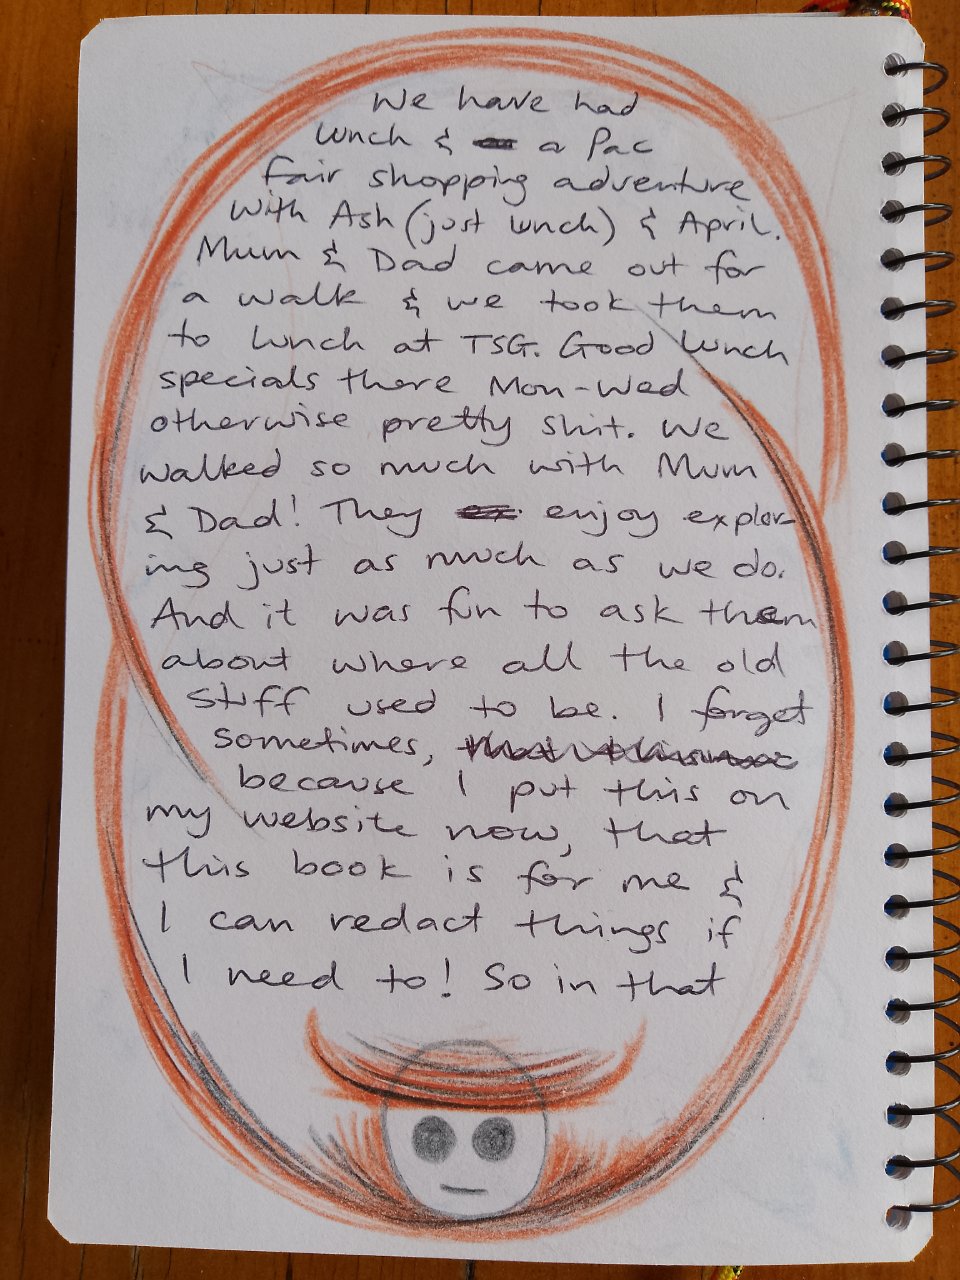 We have had
lunch & a Pac
Fair shopping adventure
with Ash (just lunch) & April.
Mum & Dad came out for
a walk & we took them
to lunch at TSG. Good lunch
specials there Mon-Wed
otherwise pretty shit. We
walked so much with Mum
& Dad! They enjoy explor-
ing just as much as we do.
And it was fun to ask them
about where all the old
stuff used to be. I forget
sometimes,
because I put this on
my website now, that
this book is for me &
I can redact things if
I need to! So in that